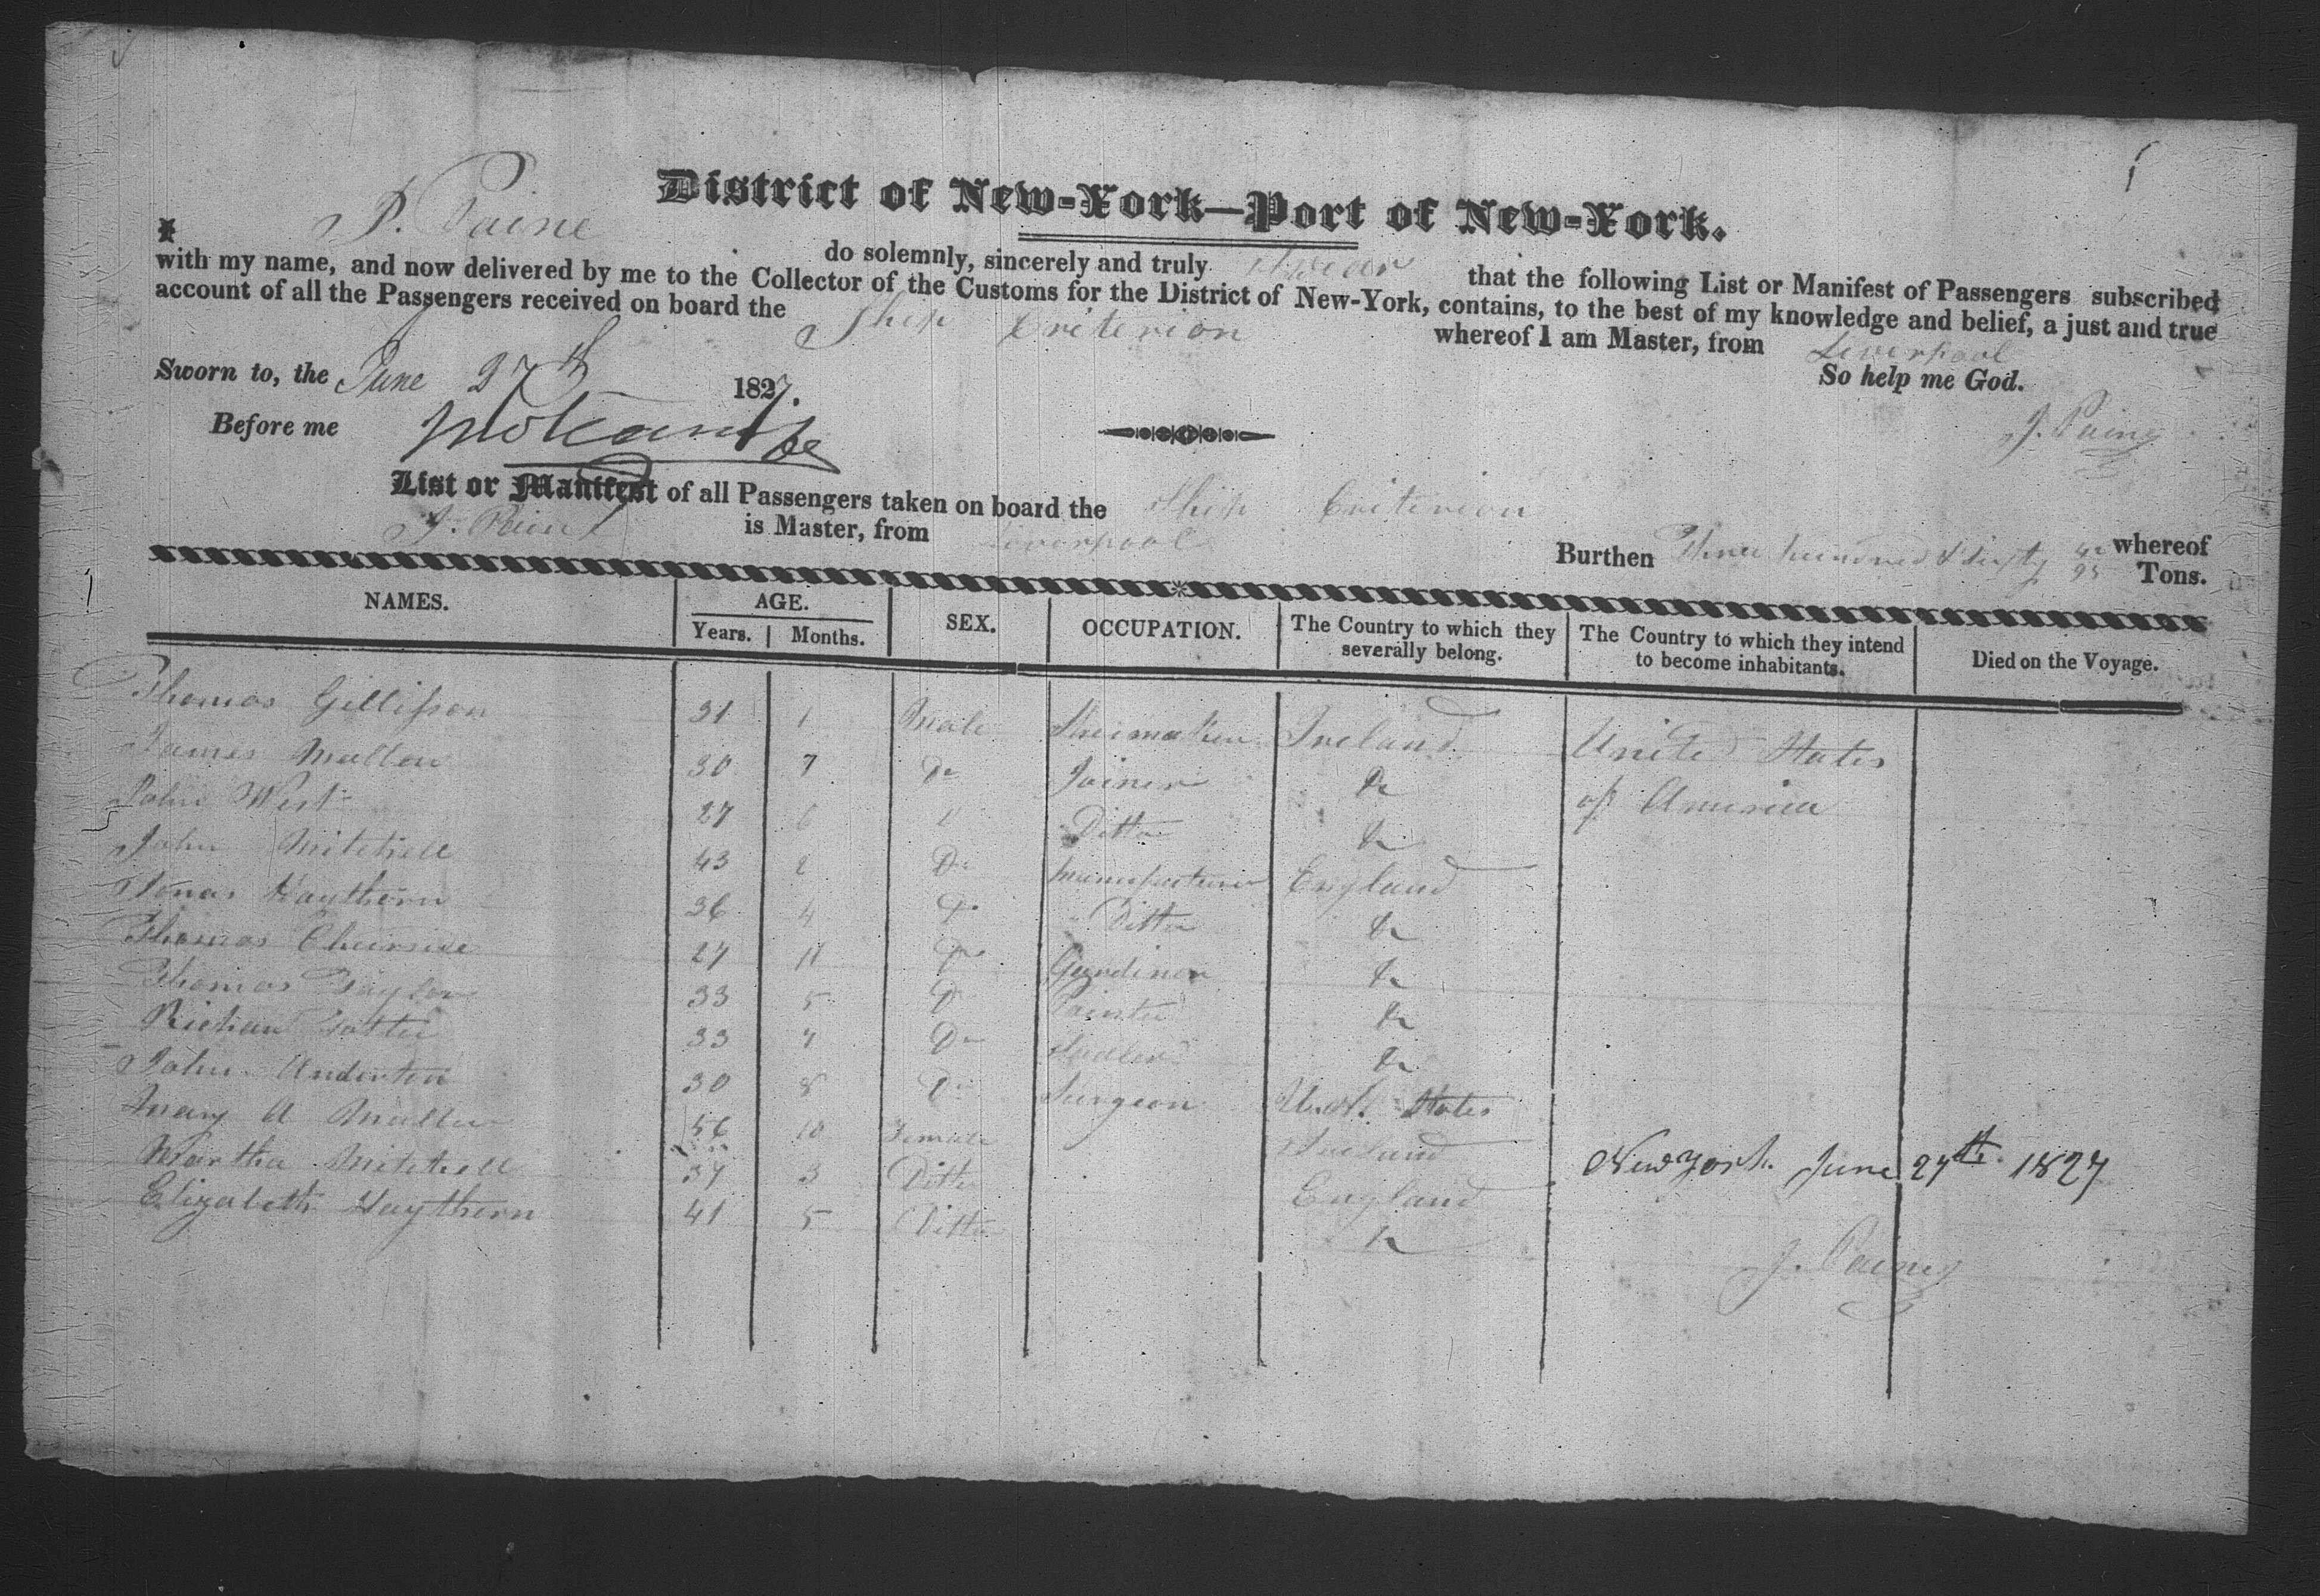 District of New-York—Port of New-York.
I J. Paine do solemnly, sincerely and truly swear that the following List or Manifest of Passengers subscribed
with my name, and now delivered by me to the Collector of the Customs for the District of New-York, contains, to the best of my knowledge and belief, a just and true
account of all the Passengers received on board the Ship Criterion whereof I am Master, from Liverpool
So help me God.
Sworn to, the June 27th 1827.
J. Paine
Before me
List or Manifest of all Passengers taken on board the Ship Criterion whereof
J. Paine is Master, from Liverpool Burthen Three hundred & sixty 42/95 Tons.
NAMES. AGE. Years. Months. SEX. OCCUPATION. The Country to which they severally belong. The Country to which they intend to become inhabitants. Died on the Voyage.
Thomas Gillisson 31 1 Male Shoemaker Ireland United States
James Mullen 30 7 Do Joiner Do of America
John West 27 6 D Ditto Do
John Mitchell 43 2 Do Manufacturer England
Jonas Haythorn 36 4 Do Ditto Do
Thomas 27 11 Do Gardinor Do
Thomas Taylor 33 5 Do Painter Do
Richard 33 7 Do Sadler Do
John Anderton 30 8 Do Surgeon Ud. States
Mary A Mullen 56 10 Female Ireland
Martha Mitchell 37 3 Ditto England
Elizabeth Haythorn 41 5 Ditto Do
New York June 27th 1827
J. Paine